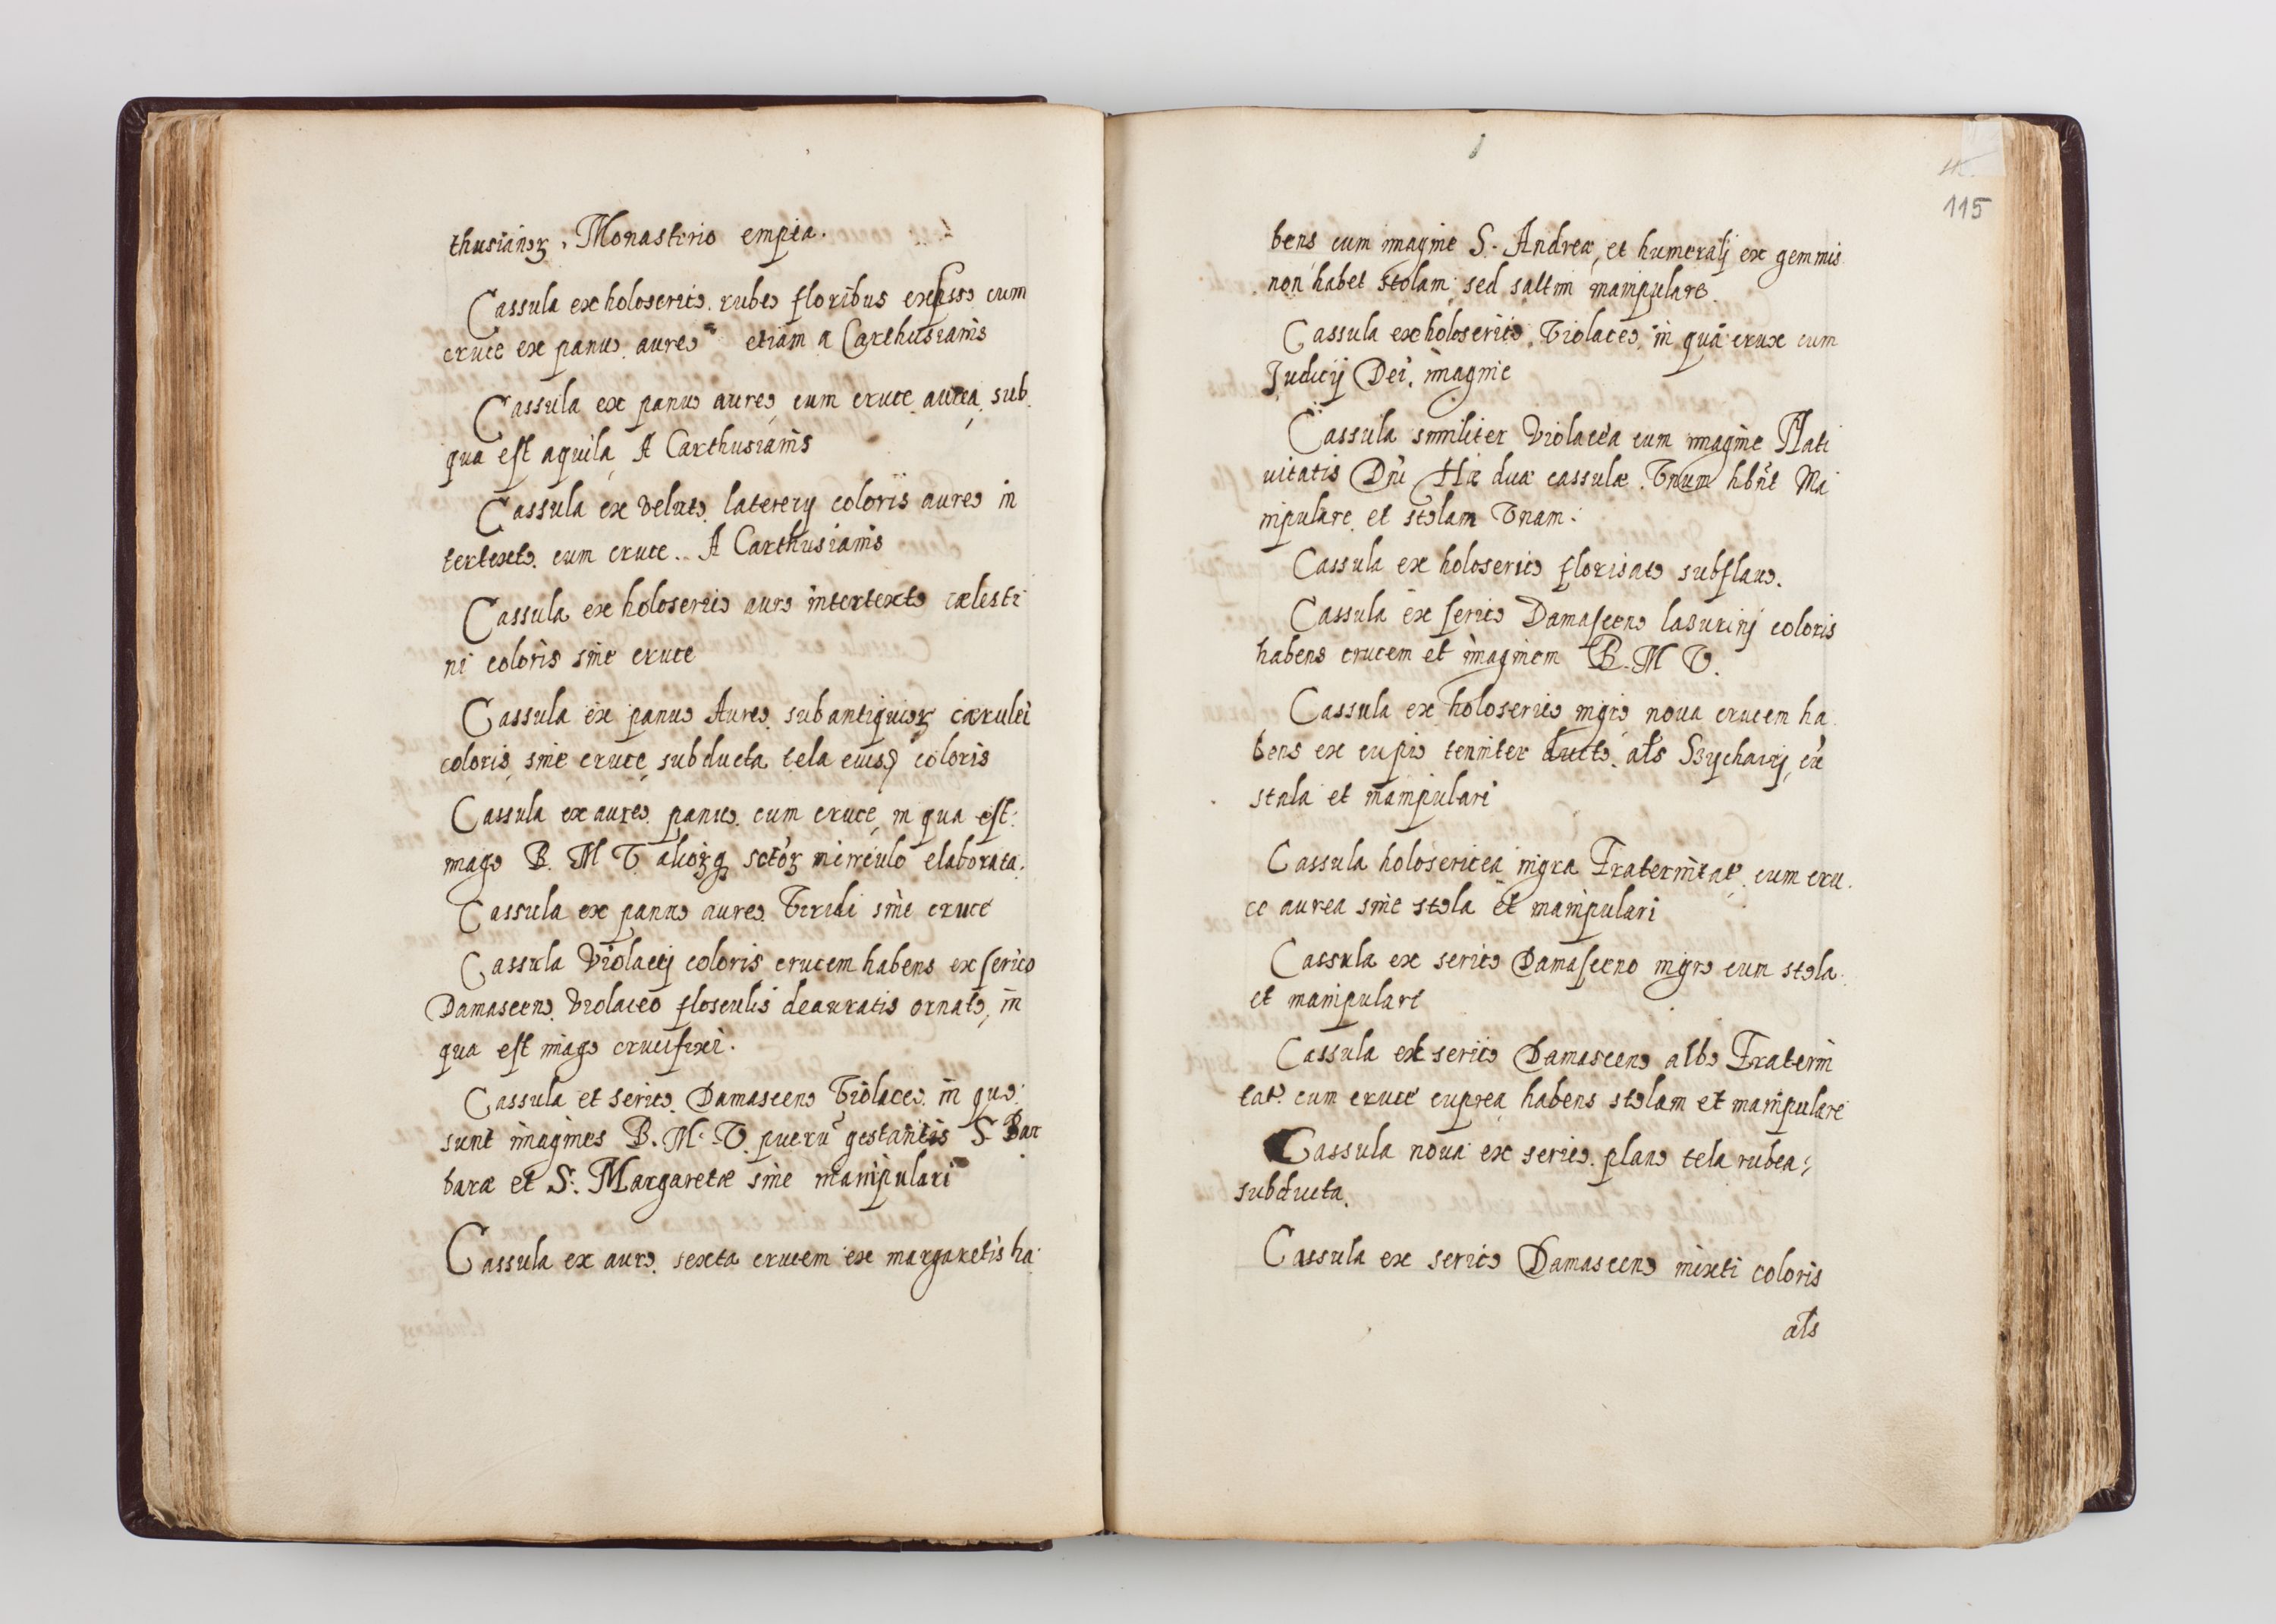 thusianoꝝ, Monasterio empta.
Cassula ex holoserico. rubeo floribus expsso cum
cruce ex panno. aureo etiam a Carthusianis
Cassula ex panno aureo, cum cruce aurea, sub
qua est aquila, A Carthusianis
Cassula ex veluto. latericij coloris aureo in
tertexto. cum cruce.. A Carthusianis
Cassula ex holoserico auro intertexto cælesti
ni coloris sine cruce
Cassula ex panno Aureo, subantiquioꝝ cærulei
coloris, sine cruce, subducta tela eiusꝫ coloris
Cassula ex aureo. panno. cum cruce, in qua est:
imago B. M V. alioꝝq sctoꝝ elaborata.
Cassula ex panno aureo. Viridi sine cruce
Cassula Violacij coloris crucem habens ex serico
Damasceno. Violaceo flosculis deauratis ornato, in
qua est imago crucifixi.
Cassula et serico. Damasceno Violaceo. in quo.
sunt imagines B. M. V. puerū gestantis S. Bar
baræ et S. Margaretæ sine manipulari
Cassula ex auro. texta crucem ex margaretis ha
115
bens cum imagine S. Andreæ, et humeralj ex gemmis
non habet stolam sed saltim manipulare.
Cassula ex holoserico. Violaceo, in qua crux cum
Judicij Dei. imagine
Cassula similiter Violacea cum imagine Nati
uitatis Dnī Hæ duæ cassulæ. Vnum hbnt Ma
nipulare et stolam Vnam.
Cassula ex holoserico florisato subflauo.
Cassula ex serico Damasceno lasurinj coloris
habens crucem et imaginem B. M V.
Cassula ex holoserico nigro noua crucem ha
bens ex cupro tenniter ducto. als Szychowy, cū
stola et manipulari
Cassula holosericea nigra Fraternitat. cum cru.
ce aurea sine stola et manipulari
Cassula ex serico Damasceno nigro cum stola
et manipulari
Cassula ex serico Damasceno albo Fraterni
tat. cum cruce cuprea habens stolam et manipulare
Cassula noua ex serico. plano tela rubea
subducta.
Cassula ex serico Damasceno mixti coloris
als